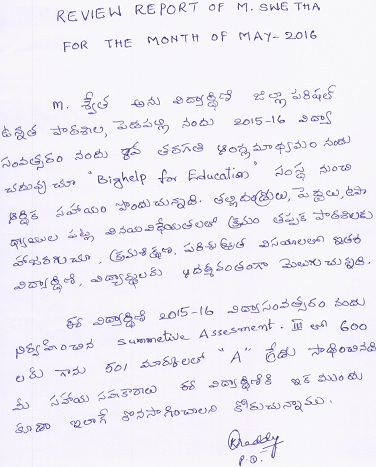 REVIEW REPORT OF M. SWETHA
FOR THE MONTH OF MAY-2016
M. శ్వేత అను విద్యార్థిణి జిల్లా పరిషత్
ఉన్నత పాఠశాల, పెడపల్లి నందు 2015-16 విద్యా
సంవత్సరం నందు 8వ తరగతి ఆంగ్లమాధ్యమం నందు
చదువుచూ "Bighelp for Education" సంస్థ నుంచి
ఆర్థిక సహాయం పొందుచున్నది. తల్లిదండ్రులు, పెద్దలు, ఉపా
ధ్యాయుల పట్ల వినయవిధేయతలతో క్రమం తప్పక పాఠశాలకు
హాజరగుచూ, క్రమశిక్షణ, పరిశుభ్రత విషయాలలో ఇతర
విద్యార్థిణి, విద్యార్థులకు ఆదర్శవంతంగా మెలుగుచున్నది.
ఈ విద్యార్థిణి 2015-16 విద్యాసంవత్సరం నందు
నిర్వహించిన Summetive Assesment. III లో 600
లకు గాను 501 మార్కులలో "A" గ్రేడు సాధించినది
మీ సహాయ సహకారాలు ఈ విద్యార్థిణికి ఇక ముందు
కూడా ఇలాగే కొనసాగించాలని కోరుచున్నాము.
KReddy
P.D.